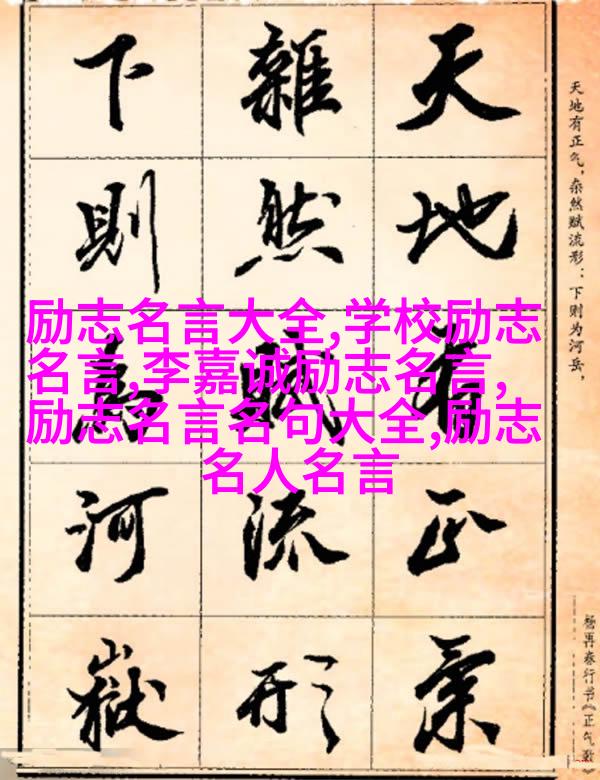 天地有正氣
雜然賦流形
下則為河嶽
天地有正气，杂然赋流形：下则为河岳，
杨再春行书《正气歌》
励志名言大全,学校励志
名言,李嘉诚励志名言,
励志名言名句大全,励志
名人名言